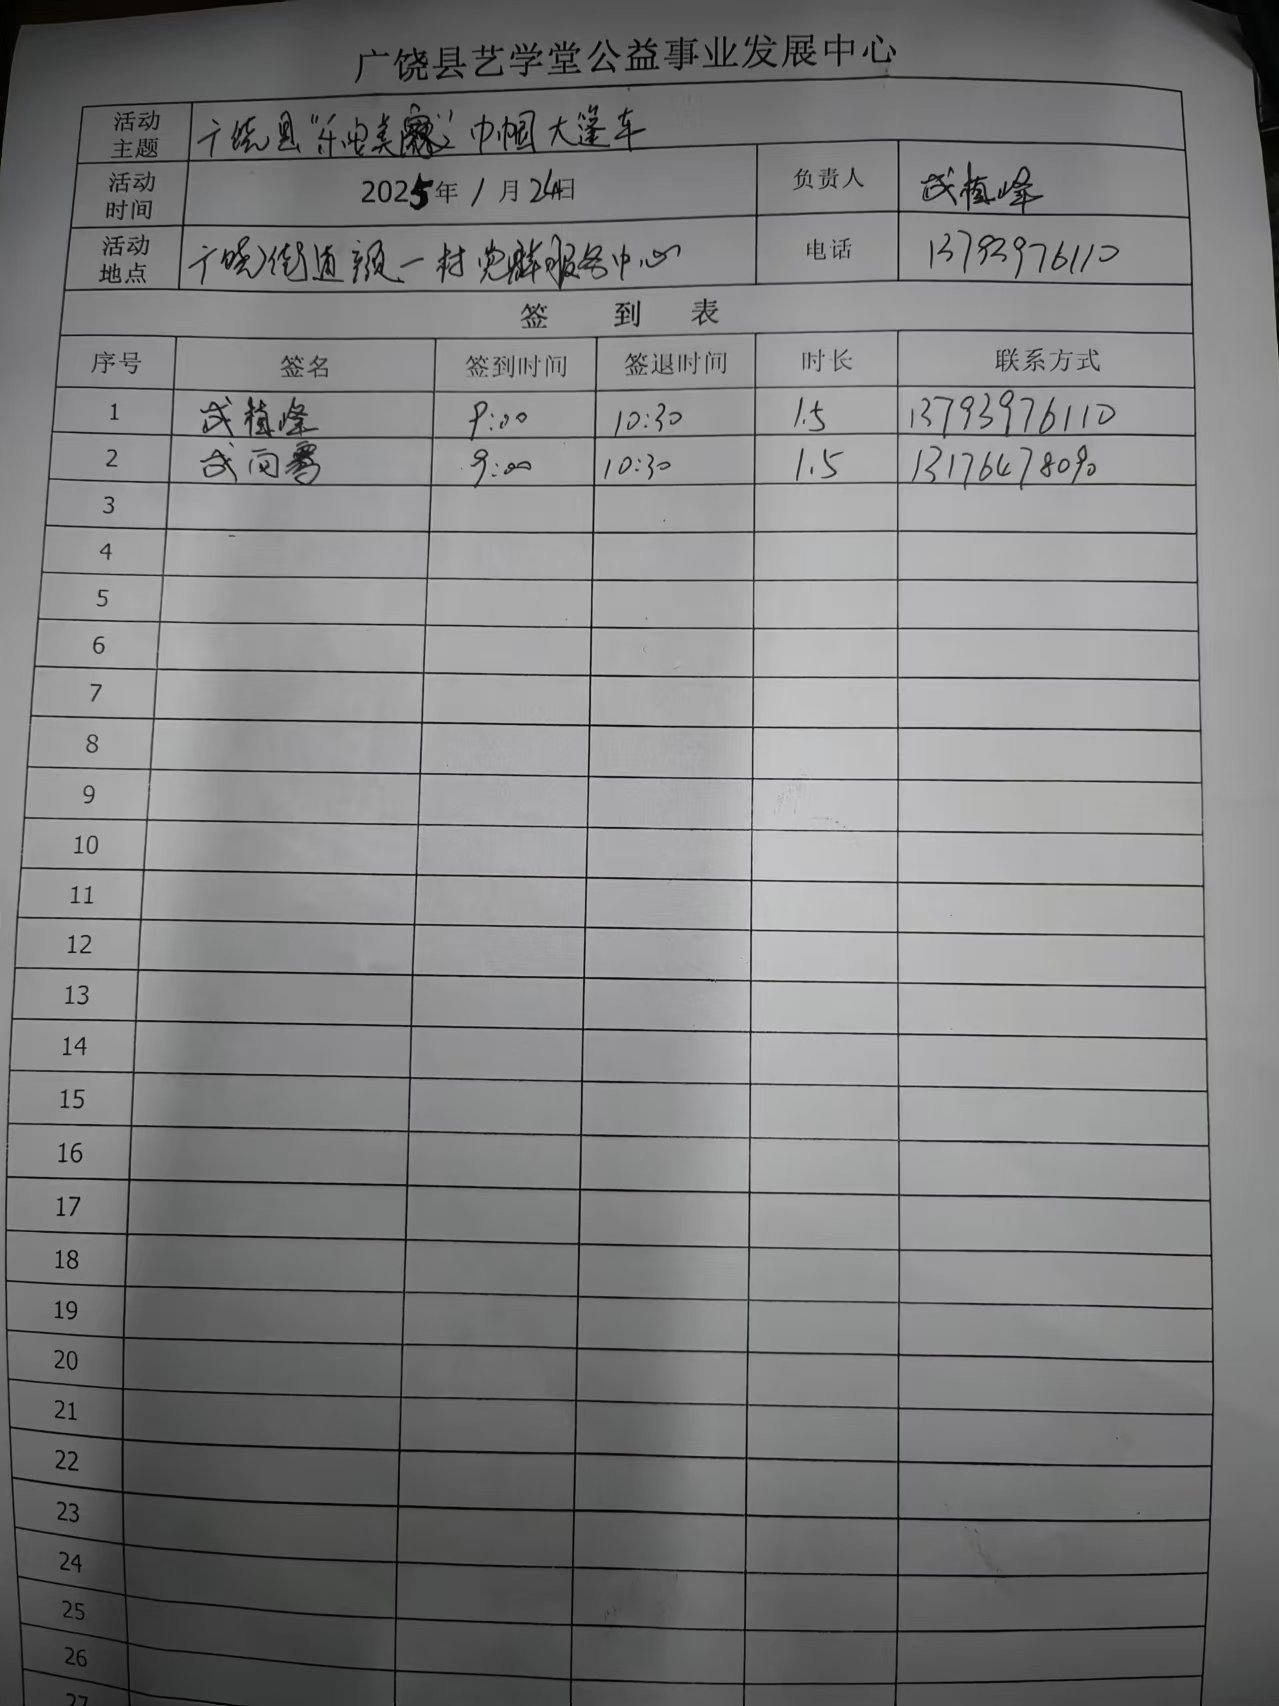 广饶县艺学堂公益事业发展中心
活动主题 广饶县“乐 美 ” 巾帼大篷车
活动时间 2025年1月24日 负责人 成植峰
活动地点 广饶街道 一村党群服务中心 电话 13793976110
签 到 表
序号 签名 签到时间 签退时间 时长 联系方式
1 成植峰 9:00 10:30 1.5 13793976110
2 成 9:00 10:30 1.5
3
4
5
6
7
8
9
10
11
12
13
14
15
16
17
18
19
20
21
22
23
24
25
26
27